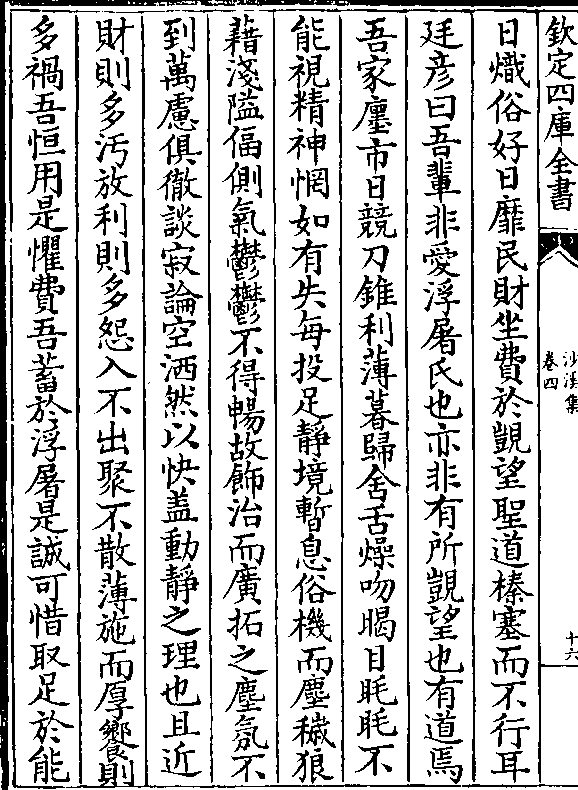 欽定四庫全書
沙溪集
卷四
十六
日熾俗好日靡民財坐費於覬望聖道榛塞而不行耳
廷彦曰吾輩非愛浮屠氏也亦非有所覬望也有道焉
吾家廛市日競刀錐利薄暮歸舍舌燥吻暍目眊眊不
能視精神惘如有失每投足靜境暫息俗機而塵穢狼
藉淺隘偪側氣鬱鬱不得暢故飾治而廣拓之塵氛不
到萬慮俱徹談寂論空洒然以快盖動靜之理也且近
財則多汚放利則多怨入不出聚不散薄施而厚饗則
多禍吾恒用是懼費吾蓄於浮屠是誠可惜取足於能